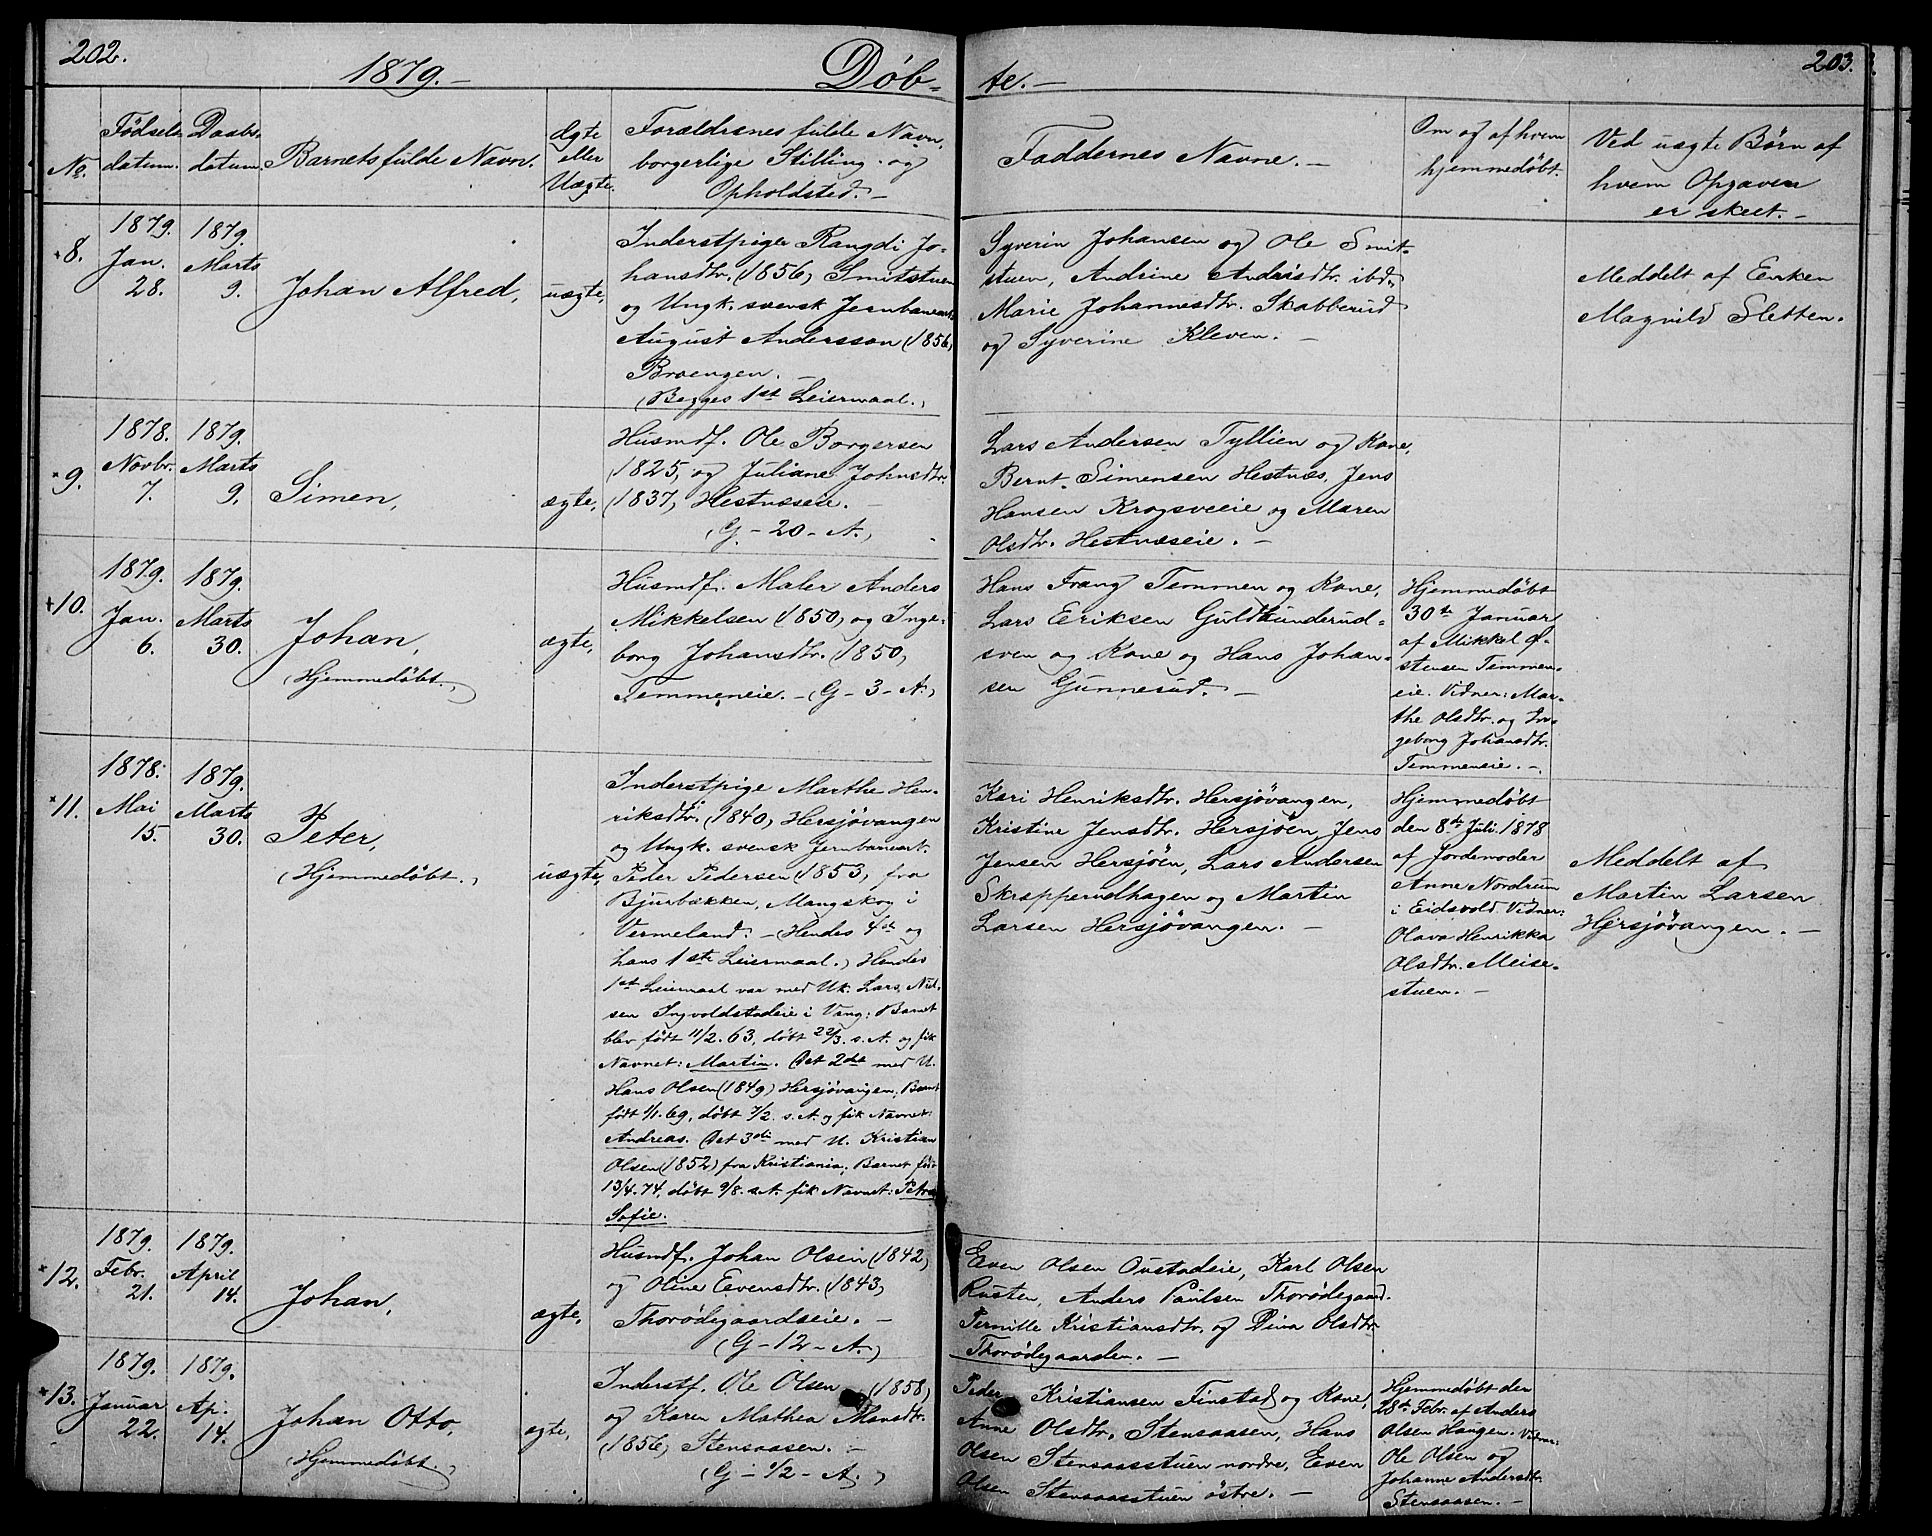 202.
1879.-
Døb-
te.-
203.
No.
Fødsels
datum.
Daabs-
datum.
Barnets fulde Navn.
Ægte
eller
Uægte.
Forældrenes fulde Navn,
borgerlige Stilling og
Opholdsted.-
Faddernes Navne.-
Om og af hvem
hjemmedøbt.
Ved uægte Børn af
hvem Opgaven
er skeet.-
8.
1879.
Jan.
28.
1879.
Marts
9.
Johan Alfred,
uægte,
Inderstpige Rangdi Jo-
hansdtr. (1856) Smitstuen
og Ungk. svensk Jernbanearb.
August Andersson (1856)
Braengen.-
(Begges 1st Leiermaal.)
Syverin Johansen og Ole Smit-
stuen, Andrine Andersdtr. ibd.
Marie Johannesdtr. Skabberud
og Syverine Kleven.-
Meddelt af Enken
Magnild Sletten.
9.
1878.
Novbr.
7.
1879.
Marts
9.
Simen,
ægte,
Husmdf. Ole Borgersen
(1825) og Juliane Johnsdtr.
(1837) Hestnæseie.-
(G-20-A.)
Lars Andersen Tyllien og Kone,
Bernt Simensen Hestnæs, Jens
Hansen Krogsveeie og Maren
Olsdtr. Hestnæseie.-
10.
1879.
Jan.
6.
1879.
Marts
30.
Johan,
(Hjemmedøbt.)
ægte,
Husmdf. Maler Anders
Mikkelsen (1850) og Inge-
borg Johansdtr. (1850)
Temmeneie.-(G-3-A.)
Hans Frang Temmen og Kone,
Lars Eriksen Guldhunderud-
sven og Kone og Hans Johan-
sen Gunnesud.-
Hjemmedøbt
30te Januar
af Mikkel Ø-
stensen Temmen-
eie. Vidner: Mar-
the Olsdtr. og In-
geborg Johansdtr.
Temmeneie.-
11.
1878.
Mai
15.
1879.
Marts
30.
Peter,
(Hjemmedøbt.)
uægte,
Inderstpige Marthe Hen-
riksdtr. (1840) Hersjøvangen
og Ungk. svensk Jernbanearb.
Peder Pedersen (1853) fra
Bjurbækken, Mangskog i
Vermeland.-(Hendes 4de og
hans 1ste Leiermaal.) Hendes
1st Leiermaal var med Uk. Lars Niel-
sen Ingvoldstadeie i Vang: Barnet
blev født 11/2. 63, døbt 22/3. s.A. og fik
Navnet: Martin. Det 2det med U.
Hans Olsen (1849) Hersjøvangen, Barnet
født 1/1. 69, døbt 7/2. s.A. og fik Navnet:
Andreas. Det 3di med U. Kristian
Olsen (1852) fra Kristiania, Barnet født
13/4. 74, døbt 9/8. s.A. fik Navnet: Petra
Sofie.
Kari Henriksdtr. Hersjøvangen,
Kristine Jensdtr. Hersjøen, Jens
Jensen Hersjøen, Lars Andersen
Skrepperudhagen og Martin
Larsen Hersjøvangen.-
Hjemmedøbt
den 8de Juli 1878
af Jordemoder
Anne Nordrum
i Eidsvold. Vidner:
Olava Henrikka
Olsdtr. Meise-
stuen.-
Meddelt af
Martin Larsen
Hersjøvangen.-
12.
1879.
Febr.
21.
1879.
April
14.
Johan,
ægte,
Husmdf. Johan Olsen (1842)
og Oline Evensdtr. (1843)
Thorødegaardseie.-
(G-12-A.)
Even Olsen Ovstadeie, Karl Olsen
Rusten, Anders Paulsen Thorødegaard.
Pernille Kristiansdtr. og Dina Olsdtr.
Thorødegaarden.-
13.
1879.
Januar
22.
1879.
Ap.
14.
Johan Otto,
(Hjemmedøbt.)
ægte,
Inderstf. Ole Olsen (1858)
og Karen Mathea Monsdtr.
(1856) Stensaasen.-
(G-1/2-A.)
Peder Kristiansen Finstad og Kone,
Anne Olsdtr. Stensaasen, Hans
Olsen Stensaasstuen nordre, Even
Olsen Stensaasstuen østre.-
Hjemmedøbt den
28de Febr. af Anders
Olsen Haugen. Vidner:
Ole Olsen og
Johanne Andersdtr.
Stensaasen.-